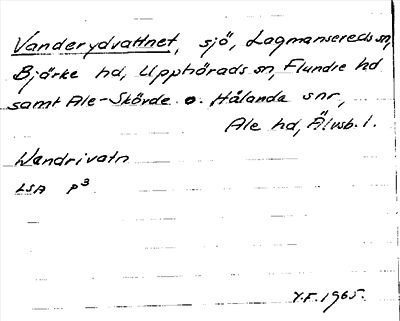 Vanderydvattnet, sjö, Lagmansereds sn,
Bjärke hd, Upphärads sn, Flundre hd
samt Ale-Skövde o. Hålanda snr,
Ale hd, Älvsb. l.
Wandrivatn
LSA p³
Y.F. 1965.